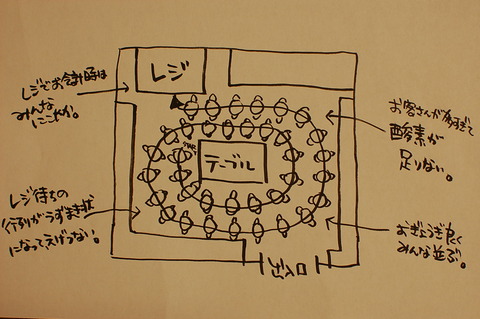 レジ
レジでお会計時は
みんな
にこやか。
お客さんが多すぎて
酸素が
足りない。
START
テーブル
レジ待ちの
行列がうずまき状
になって、えげつない。
おぎょうぎ良く
みんな並ぶ。
出入口